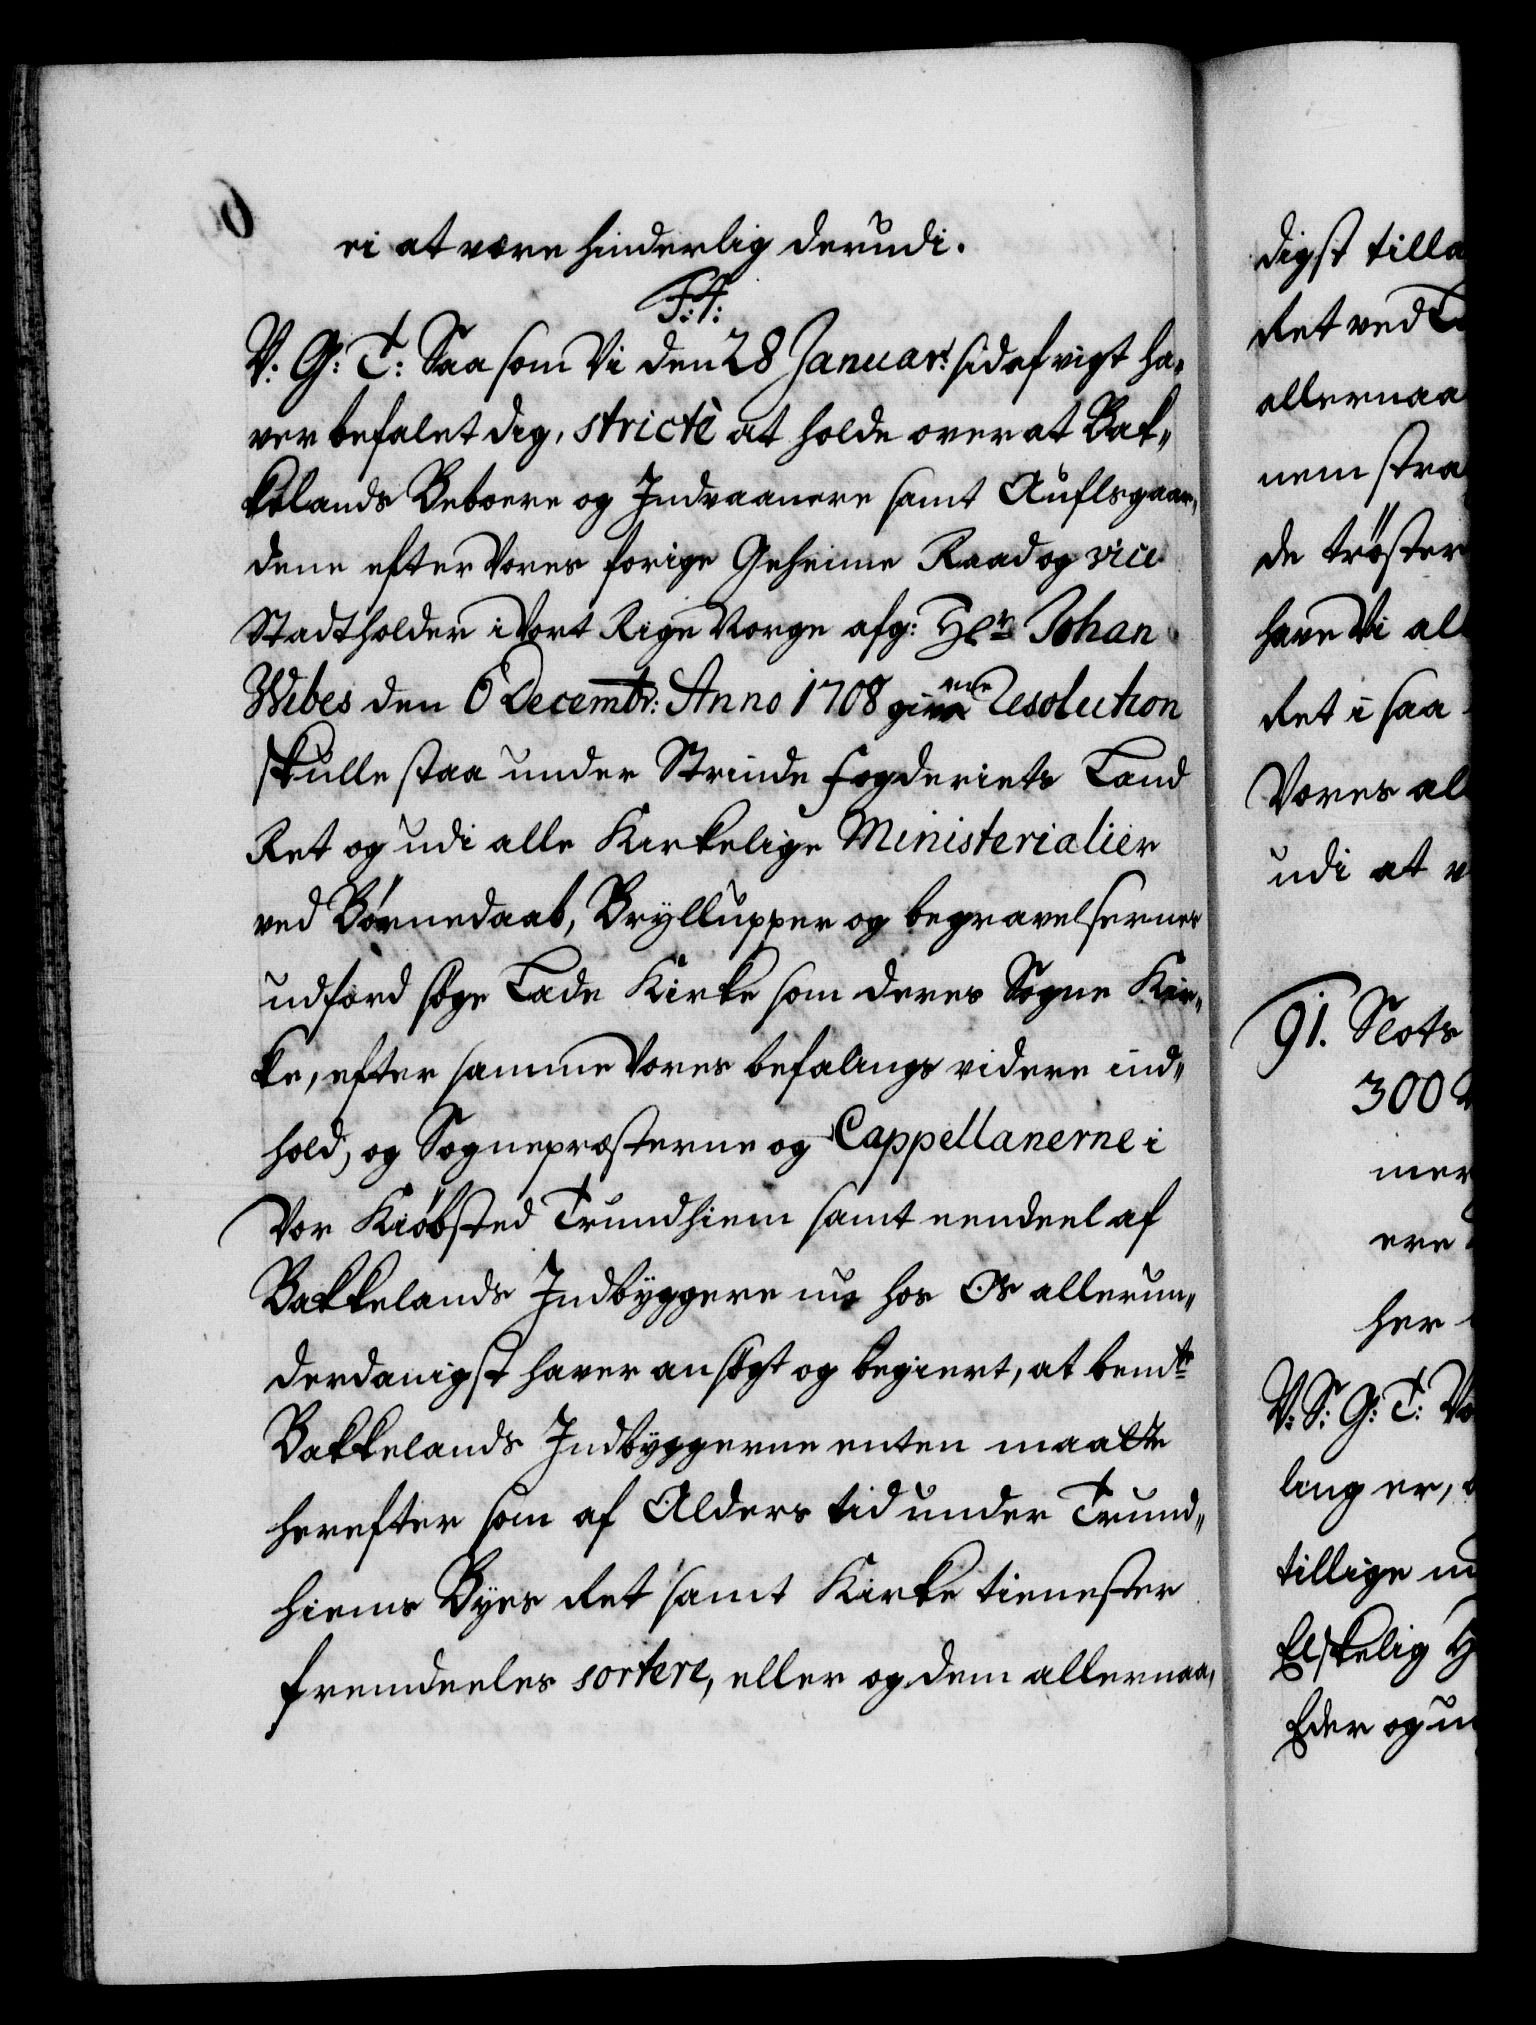 ei at være hinderlig derudi.
F. 4.
V: G: T: Saa som Vi den 28 Januar: sidst vigt ha-
ver befalet dig, strictè at holde over at Bak-
kelands Beboere og Indvaanere samt
dene efter Vores forige Geheime Raad og vice
Stadtholder i Vort Rige Norge afg: Hr Johan
Wibes den 6 Decembr: Anno 1708 givne Resolution
skulle staa under Strinde Fogderiets Land
Ret og udi alle Kirkelige Ministerialier
ved Børnedaab, Brylluper og begravelsernes
udførd søge Lade Kirke som deres Sogne Kir-
ke, efter samme Vores befalings videre ind-
hold, og Sognepræsterne og Cappellanerne i
Vor Kiøbsted Trundhiem samt eendeel af
Bakkelands Indbyggere nu hos Os allerun-
derdanigst haver ansøgt og begiert, at bemte
Bakkelands Indbyggerne enten maatte
herefter som af Alders tid under Trund-
hiems Byes Ret samt Kirke tienester
fremdeeles sortere, eller og dem allernaa-
digst tilla
Ret ved
allernaa
nem stra
de trøster
have Vi al
Ret i saa
Vores al
udi at v
91. Slots
300
mer
ere
her
V: S: G: T: Vo
lang er,
tillige
Elskelig H
Eder og